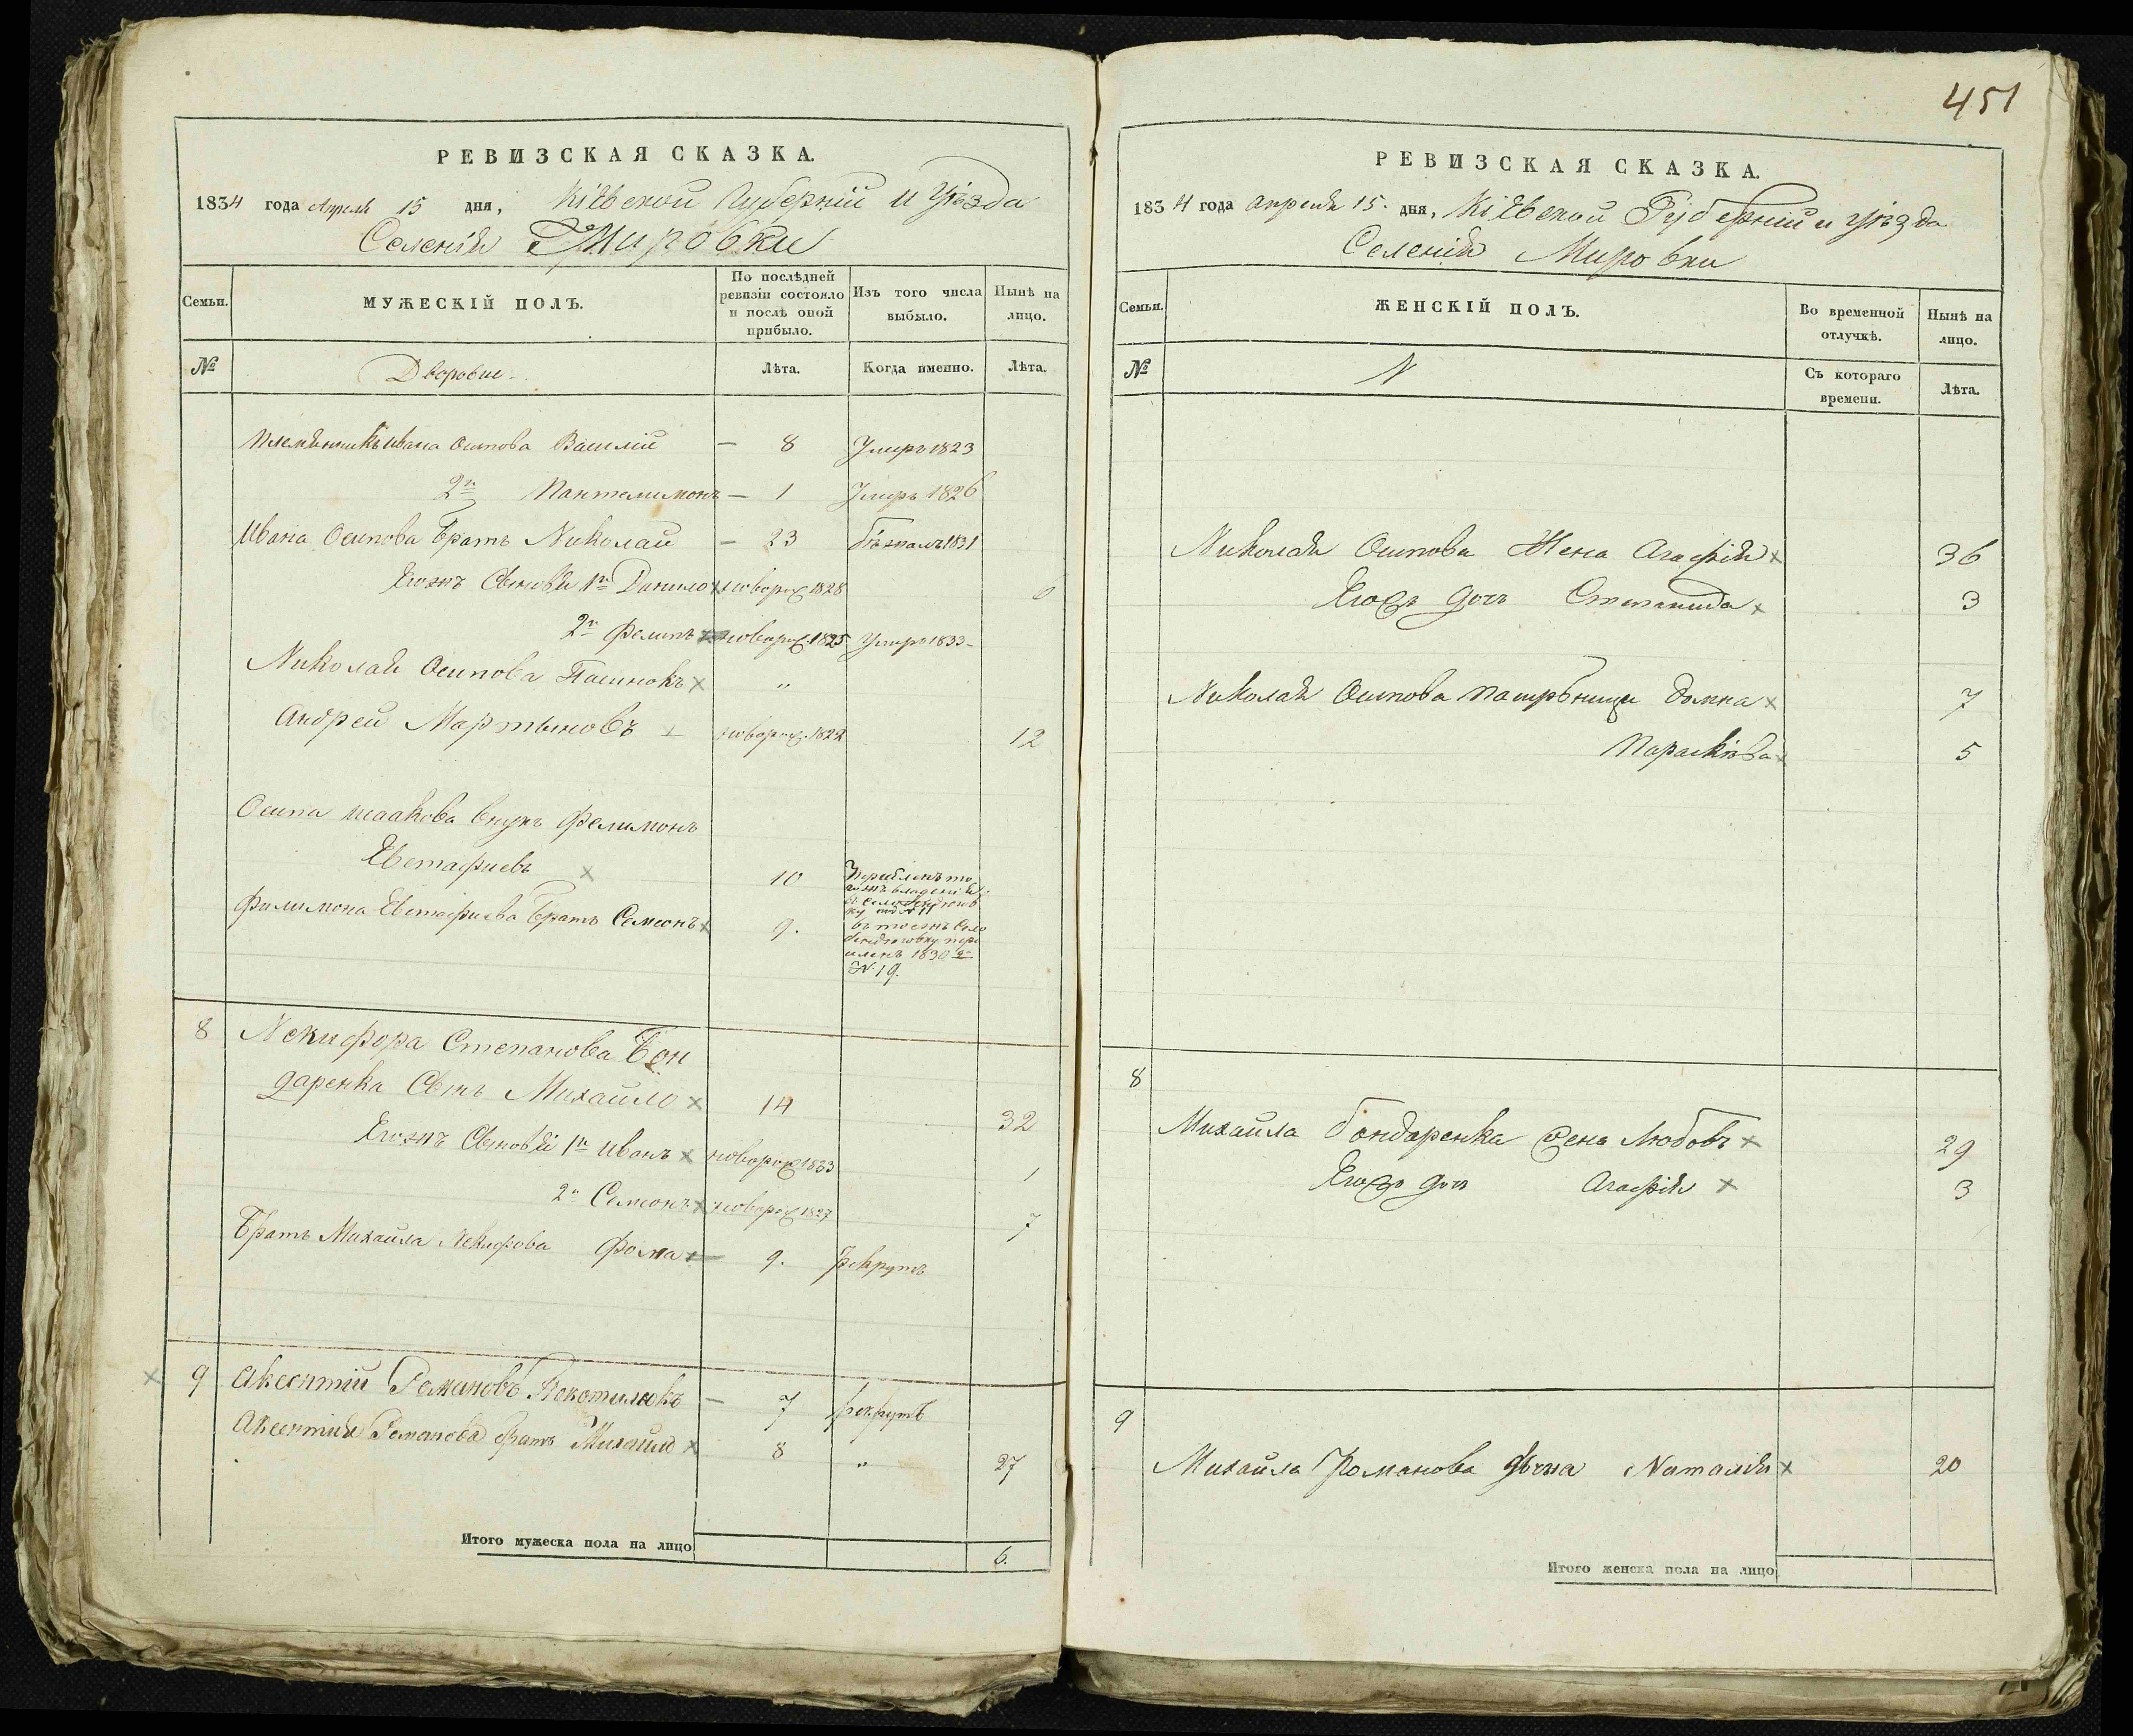 451
РЕВИЗСКАЯ СКАЗКА.
1834 года Апреля 15 дня, Кіевской Губерніи и Уѣзда
Селенія Мировки
Семьи.
МУЖЕСКІЙ ПОЛЪ.
По послѣдней ревизіи состояло и послѣ оной прибыло.
Изъ того числа выбыло.
Нынѣ на лицо.
№
Дворовые
Лѣта.
Когда именно.
Лѣта.
Племянникъ Ивана Осипова Василій — 8 Умеръ 1823
2й Пантелимонъ — 1 Умеръ 1826
Ивана Осипова Братъ Николай — 23 бѣжалъ 1831
Егожъ Сыновья 1й Данило новорож 1828 6
2й Филипъ новорож 1825 Умеръ 1833
Николая Осипова Пасинокъ "
Андрей Мартыновъ новорож. 1822 12
Осипа Исаакова внукъ Филимонъ
Евстафиевъ 10
Филимона Евстафиева Братъ Семионъ 9.
1830
№ 19.
8 Никифора Степанова Бон
даренка Сынъ Михайло 14 32
Егожъ Сыновья 1й Иванъ новорож 1833 1
2й Семионъ новорож 1827 7
Братъ Михайла Никифрова Фома 9. рекрутъ
9 Авксентій Романовъ — 7 рекрутъ
Авксентія Романова братъ Михайло 8 " 27
Итого мужеска пола на лицо 6.
РЕВИЗСКАЯ СКАЗКА.
1834 года апреля 15. дня, Кіевской Губерніи и уѣзда
Селенія Мировки
Семьи.
ЖЕНСКІЙ ПОЛЪ.
Во временной отлучкѣ.
Нынѣ на лицо.
№
Съ котораго времени.
Лѣта.
Николая Осипова Жена Агафія 36
Егожъ дочь Степанида 3
Николая Осипова падчерыцы Домна 7
Параскѣва 5
8
Михаила Бондаренка жена Любовъ 29
Егожъ дочь Агафія 3
9
Михайла Романова жена Наталія 20
Итого женска пола на лицо